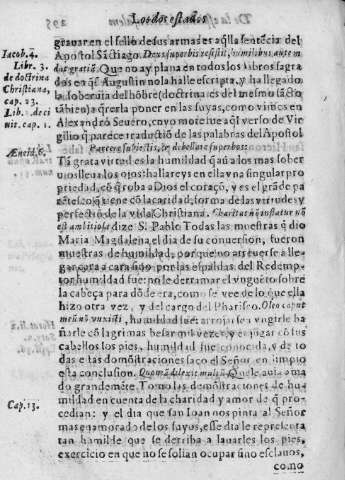 Los dos estados
Iacob. 4.
Libr. 3.
de doctrina
Christiana,
cap. 23.
Lib. 1. deci
uit. cap. 1.
Æneid. 6.
Cap. 13.
grauar en el sello de sus armas es aq̃lla sentẽcia del
Apostol Sãctiago. Deus superbis resistit, humilibus autem
dat gratiã. Que no ay plana en todos los libros sagra
dos en q̃ S. Augustin no la halle escripta, y ha llegado
la soberuia del hõbre (doctrina es del mesmo sãcto
tãbien) a q̃rerla poner en las suyas, como vimos en
Alexandro Seuero, cuyo mote fue aq̃l verso de Vir
gilio q̃ parece traductiõ de las palabras del Apostol
Parcere subiectis, & debellare superbos:
Tã grata virtud es la humildad q̃ aũ a los mas sober
uios lleua los ojos: hallareys en ella vna singular pro
priedad, cõ q̃ roba a Dios el coraçõ, y es el grãde pa
rẽtesco q̃ tiene cõ la caridad, forma de las virtudes y
perfectiõ de la vida Christiana. Charitas nõ inflatur nõ
est ambitiosa dize S. Pablo. Todas las muestras q̃ dio
Maria Magdalena, el dia de su conuersion, fueron
muestras de humildad, porque no atreuerse a lle-
gar cara a cara sino por las espaldas del Redemp-
tor humildad fue: no le derramar el vnguẽto sobre
la cabeça para dõde era, como se vee de lo que ella
hizo otra vez, y del cargo del Phariseo. Oleo caput
meũ nõ vnxisti, humildad fue: arrojarse a vngirle ba
ñarle cõ lagrimas besar mil vezes, y enjugar cõ sus
cabellos los pies, humildad fue conocida, y de to
das estas demõstraciones saco el Señor en limpio
esta conclusion. Quoniã dilexit multũ. Que le auia ama
do grandemẽte. Tomo las demõstraciones de hu
mildad en cuenta de la charidad y amor de q̃ pro-
cedian: y el dia que san Ioan nos pinta al Señor
mas enamorado de los suyos, esse dia le representa
tan humilde que se derriba a lauarles los pies,
exercicio en que no se solian ocupar sino esclauos,
como